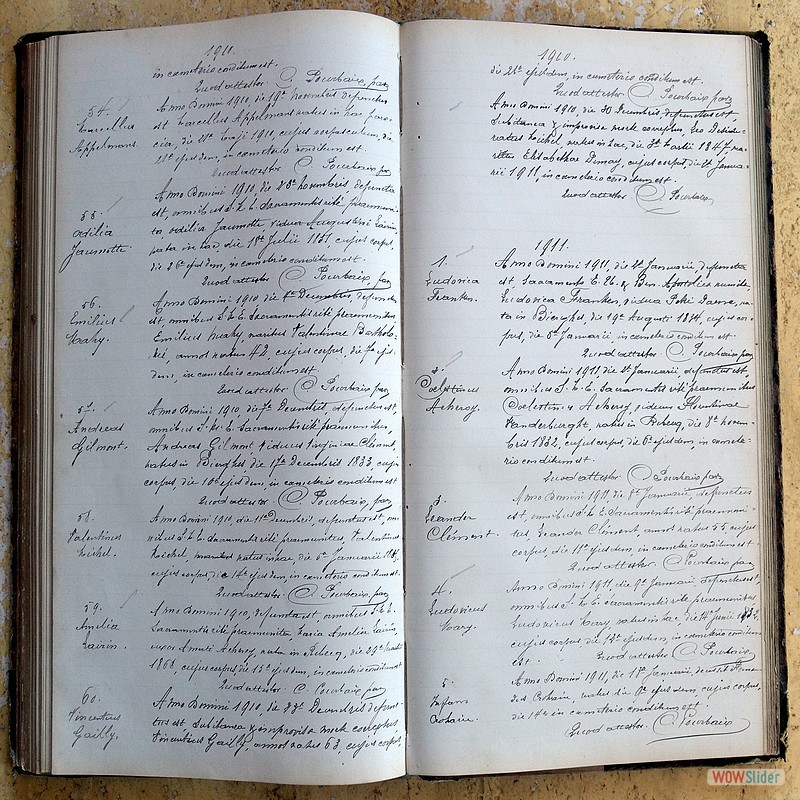 1911.
in cemeterio conditum est.
Quod attestor C. Pourbaix, par
54.
Marcellus
Appelmans
Anno Domini 1910, die 19ª novembris defunctus
est Marcellus Appelmans natus in hac paro-
cia, die
21ª ejusdem, in cemeterio conditum est.
Quod attestor C. Pourbaix, par
55.
Odilia
Jaumotte
Anno Domini 1910, die 23ª novembris, defuncta
est, omnibus S. M. E. Sacramentis rité praemuni-
ta Odilia Jaumotte vidua Augustini
nata in hac, die 18ª Julii 1831, cujus corpus,
die 26ª ejusdem, in cemeterio conditum est.
Quod attestor C. Pourbaix, par
56.
Emilius
Anno Domini 1910 die 4ª Decembris, defunctus
est, omnibus S. M. E. Sacramentis rité praemunitus
Emilius maritus Valentinae
annos natus 42, cujus corpus, die 7ª ejus-
dem, in cemeterio conditum est
Quod attestor C. Pourbaix par
57.
Andreas
Gilmont.
Anno Domini 1910, die 7ª Decembris, defunctus est,
omnibus S. M. E. Sacramentis rité praemunitus,
Andreas Gilmont viduus Virginiae Clément,
natus in Bierghes die 17ª Decembris 1833, cujus
corpus, die 10ª ejusdem, in cemeterio conditum est
Quod attestor C. Pourbaix, par
58.
Valentinus
Michel.
Anno Domini 1910, die 11ª Decembris, defunctus est, om-
nibus S. M. E. Sacramentis rité praemunitus, Valentinus
Michel, natus in hac, die 6ª Januarii
cujus corpus, die 14ª ejusdem, in cemeterio conditum est.
Quod attestor C. Pourbaix, par
59.
Amelia
Anno Domini 1910, defuncta est, omnibus S. M. E.
Sacramentis rité praemunita, Maria Amelia
uxor Amati Ackeroy, nata in Rebecq, die 29ª
1868, cujus corpus, die 15ª ejusdem, in cemeterio conditum est
Quod attestor C. Pourbaix par
60.
Vincentius
Gailly,
Anno Domini 1910, die 22ª Decembris defunc-
tus est subitanea & improvisa morte correptus
Vincentius Gailly, annos natus 63, cujus corpus,
1910.
die 25ª ejusdem, in cemeterio conditum est.
Quod attestor C. Pourbaix, par
Anno Domini 1910, die 30 Decembris defunctus est,
subitanea & improvisa morte correptus, Leo Deside-
ratus Michel, natus in hac, die 3ª Martii 1847, ma-
ritus Elisabethae Dimay, cujus corpus, die 2ª Janua-
rii 1911, in cemeterio conditum est.
Quod attestor C. Pourbaix,
1911.
1.
Ludovica
Franken.
Anno Domini 1911, die 2ª Januarii, defuncta
est, Sacramento E. U. & Ben. Apostolica munita
Ludovica Franken, vidua
ta in Bierghes, die 19ª Augusti 1834, cujus cor-
pus, die 5ª Januarii, in cemeterio conditum est.
Quod attestor C. Pourbaix par
2.
Coelestinus
Ackeroy.
Anno Domini 1911, die 2ª Januarii, defunctus est,
omnibus S. M. E. Sacramentis rité praemunitus
Coelestinus Ackeroy, viduus Florentinae
Vanderburght, natus in Rebecq, die 8ª novem-
bris 1832, cujus corpus, die 6ª ejusdem, in cemete-
rio conditum est.
Quod attestor C. Pourbaix par
3.
Leander
Clément.
Anno Domini 1911, die 8ª Januarii, defunctus
est, omnibus S. M. E. Sacramentis rité praemuni-
tus, Leander Clément, annos natus 55 cujus
corpus, die 11ª ejusdem, in cemeterio conditum est.
Quod attestor C. Pourbaix par
4.
Ludovicus
Anno Domini 1911, die 9ª Januarii, defunctus est,
omnibus S. M. E. Sacramentis rité praemunitus
Ludovicus natus in hac, die 14ª Junii 1832,
cujus corpus, die 12ª ejusdem, in cemeterio conditum
est. Quod attestor C. Pourbaix par
5.
Infans
Anno Domini 1911, die 11ª Januarii, decessit
natus die 9ª ejusdem, cujus corpus,
die 14ª in cemeterio conditum est.
Quod attestor. C. Pourbaix
WOWSlider